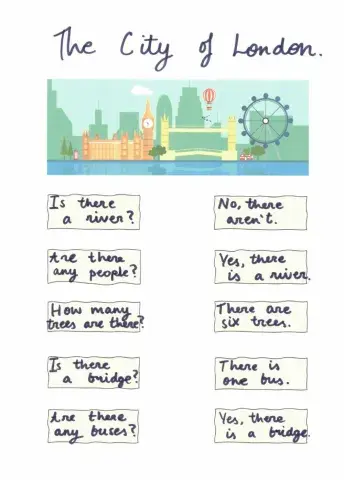 The City of London.
Is there
a river?
No, there
aren't.
Are there
any people?
Yes, there
is a river.
How many
trees are there?
There are
six trees.
Is there
a bridge?
There is
one bus.
Are there
any buses?
Yes, there
is a bridge.